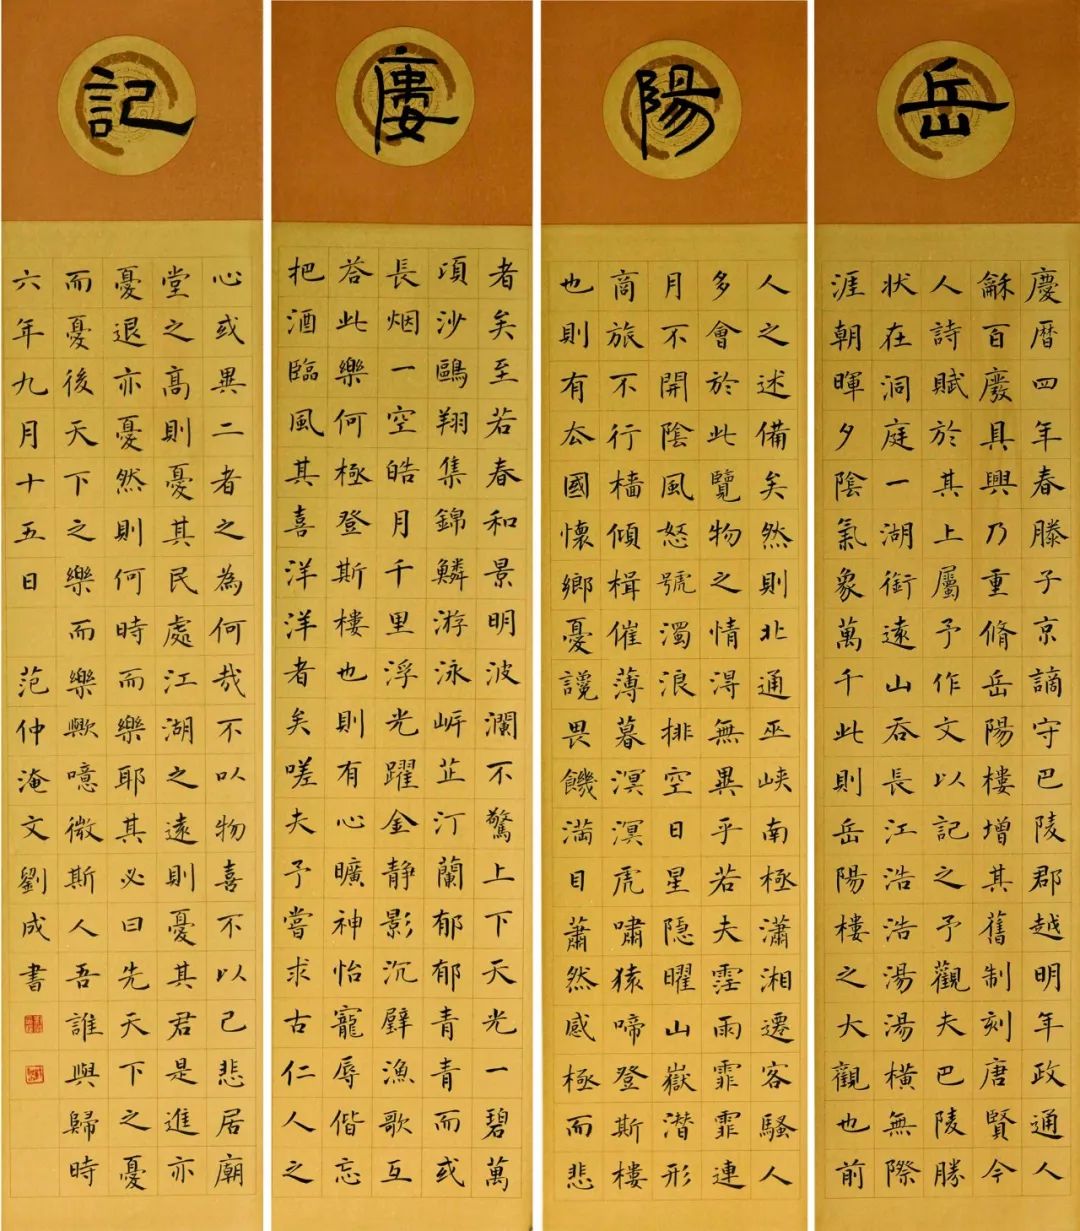 岳
慶曆四年春滕子京謫守巴陵郡越明年政通人
龢百廢具興乃重脩岳陽樓增其舊制刻唐賢今
人詩賦於其上屬予作文以記之予觀夫巴陵勝
狀在洞庭一湖銜遠山吞長江浩浩湯湯橫無際
涯朝暉夕陰氣象萬千此則岳陽樓之大觀也前
陽
人之述備矣然則北通巫峽南極瀟湘遷客騷人
多會於此覽物之情淂無異乎若夫霪雨霏霏連
月不開陰風怒號濁浪排空日星隐曜山嶽潛形
商旅不行檣傾楫催薄暮溟溟虎嘯猿啼登斯樓
也則有去國懷鄉憂讒畏饑滿目蕭然感極而悲
廔
者矣至若春和景明波瀾不驚上下天光一碧萬
頃沙鷗翔集錦鱗游泳岸芷汀蘭郁郁青青而或
長烟一空皓月千里浮光躍金静影沉璧漁歌互
荅此樂何極登斯樓也則有心曠神怡寵辱偕忘
把酒臨風其喜洋洋者矣嗟夫予嘗求古仁人之
記
心或異二者之為何哉不以物喜不以己悲居廟
堂之高則憂其民處江湖之遠則憂其君是進亦
憂退亦憂然則何時而樂耶其必曰先天下之憂
而憂後天下之樂而樂歟噫微斯人吾誰與歸時
六年九月十五日 范仲淹文劉成書